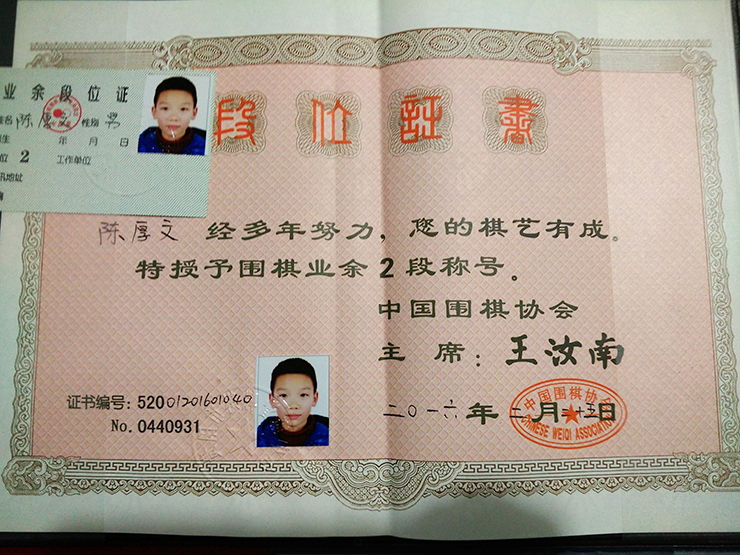 业余段位证
姓名 陈厚 性别 男
生 年 月 日
位 2 工作单位
讯地址
段位証書
陈厚文 经多年努力，您的棋艺有成。
特授予围棋业余2段称号。
中国围棋协会
主 席：王汝南
证书编号：5200120160104​0
No. 0440931
二〇一六年二月二十五日
中国围棋协会
CHINESE WEIQI ASSOCIATION